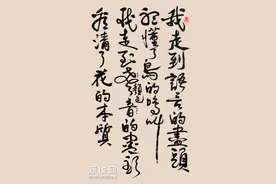 我走到語言的盡頭
听懂了鳥的鳴叫
我走到聲音的盡頭
看清了花的本質
新华网